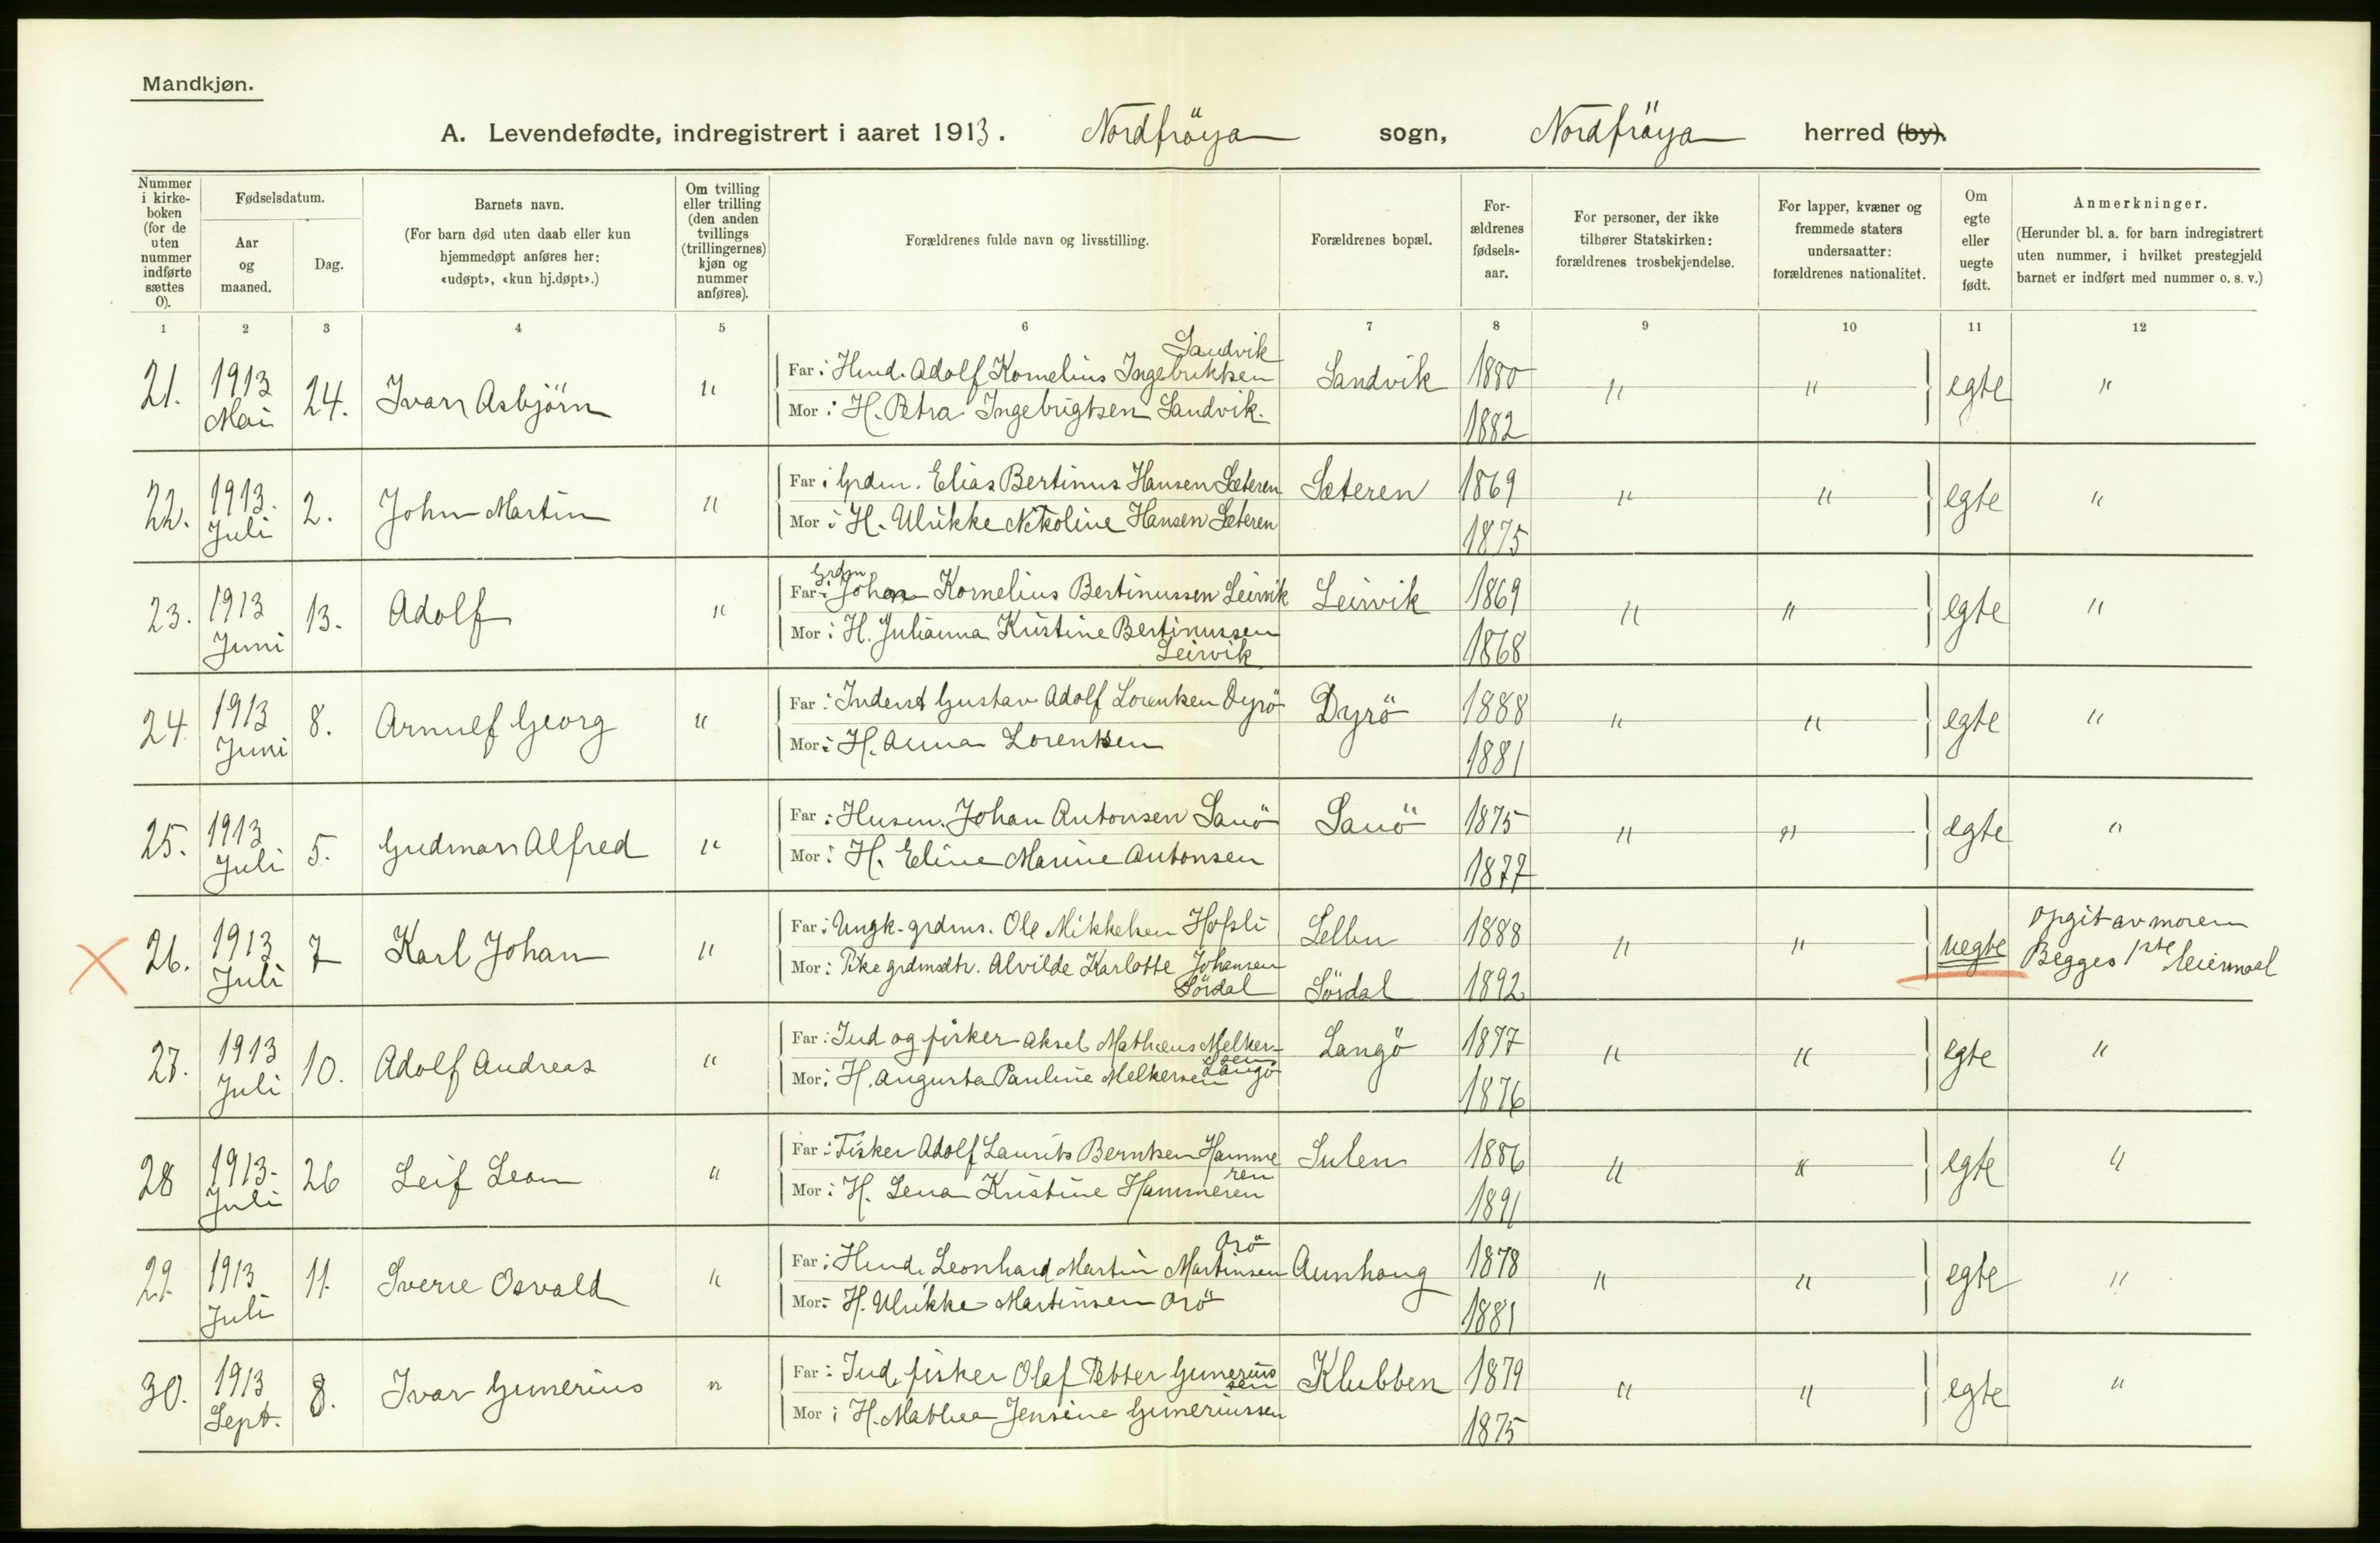 Mandkjøn.
A. Levendefødte, indregistrert i aaret 1913. Nordfröya sogn, Nordfröya herred (by).
Nummer i kirke-boken (for de uten nummer indførte sættes 0).
Fødselsdatum.
Aar og maaned.
Dag.
Barnets navn.
(For barn død uten daab eller kun hjemmedøpt anføres her: «udøpt», «kun hj.døpt».)
Om tvilling eller trilling (den anden tvillings (trillingernes) kjøn og nummer anføres).
Forældrenes fulde navn og livsstilling.
Forældrenes bopæl.
For-ældrenes fødsels-aar.
For personer, der ikke tilhører Statskirken: forældrenes trosbekjendelse.
For lapper, kvæner og fremmede staters undersaatter: forældrenes nationalitet.
Om egte eller uegte født.
Anmerkninger.
(Herunder bl. a. for barn indregistrert uten nummer, i hvilket prestegjeld barnet er indført med nummer o. s. v.)
1 2 3 4 5 6 7 8 9 10 11 12
21. 1913 Mai 24. Ivar Asbjörn " Far: Hmd. Adolf Kornelius Ingebriktsen Sandvik Sandvik 1880 " " egte "
Mor: H. Petra Ingebrigtsen Sandvik. 1882
22. 1913. Juli 2. John Martin " Far: Grdm. Elias Bertinus Hansen Sæteren Sæteren 1869 " " egte "
Mor: H. Ulrikke Nikoline Hansen Sæteren 1875
23. 1913 Juni 13. Adolf " Far: Grdm Johan Kornelius Bertinussen Leirvik Leirvik 1869 " " egte "
Mor: H. Julianna Kristine Bertinussen Leirvik 1868
24 1913 Juni 8. Arnulf Georg " Far: Inderst Gustav Adolf Lorentsen Dyrö Dyrö 1888 " " egte "
Mor: H. Anna Lorentsen 1881
25. 1913 Juli 5. Gudmar Alfred " Far: Husm. Johan Antonsen Sanö Sauö 1875 " " egte "
Mor: H. Eline Marine Antonsen 1877
26. 1913 Juli 7 Karl Johan " Far: Ungk. grdms. Ole Mikkelsen Hofsli Selbu 1888 " " uegte Opgit av moren
Mor: Pike grdmsdtr. Alvilde Karlotte Johansen Sördal Sördal 1892 Begges 1ste leiermaal
27. 1913 Juli 10. Adolf Andreas " Far: Ind og fisker Aksel Mathæus Melkersen Langö Langö 1877 " " egte "
Mor: H. Augusta Pauline Melkersen 1876
28 1913. Juli 26 Leif Leon " Far: Fisker Adolf Laurits Berntsen Hammeren Sulen 1886 " " egte "
Mor: H. Lena Kristine Hammeren 1891
29. 1913 Juli 11. Sverre Osvald " Far: Hmd. Leonhard Martin Martinsen Orö Aunhaug 1878 " " egte "
Mor: H. Ulrikke Martinsen Orö 1881
30. 1913 Sept. 8. Ivar Gunerius " Far: Ind. fisker Olaf Petter Guneriussen Klubben 1879 " " egte "
Mor: H. Mathea Jensine Guneriussen 1875